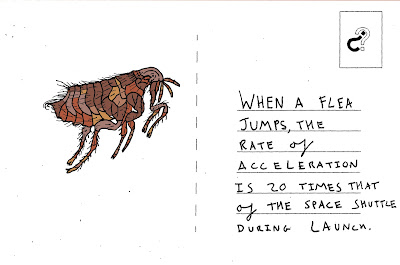 ?
WHEN A FLEA
JUMPS, THE
RATE of
ACCELERATION
IS 20 TIMES THAT
of THE SPACE SHUTTLE
DURING LAUNCH.